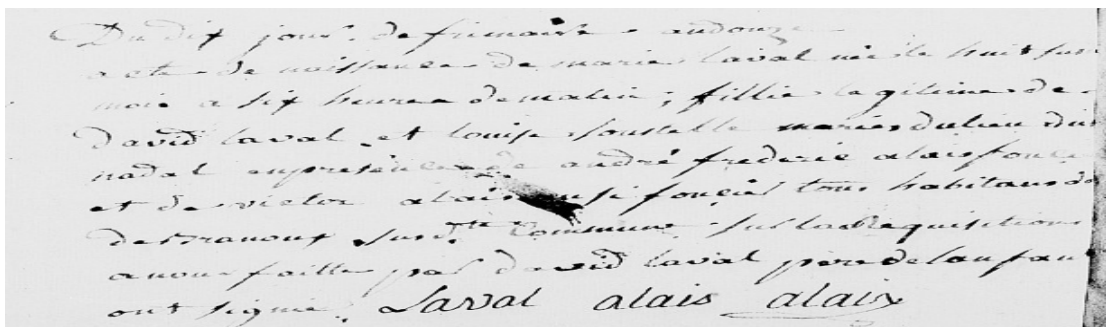 Du dix jour de frimaire an douze
acte de naissance de marie laval née le huit du
mois a six heures de matin, fillie legitime de
david laval et louise soustelle mariés du lieu du
nadal en presence de andré frederic alais foncier
et de victor alais ausi foncier tous habitans de
de branoux susd.te Commune, sur la Requisition
a nous faitte par david laval pere de lanfant
ont signié. Laval alais alaix